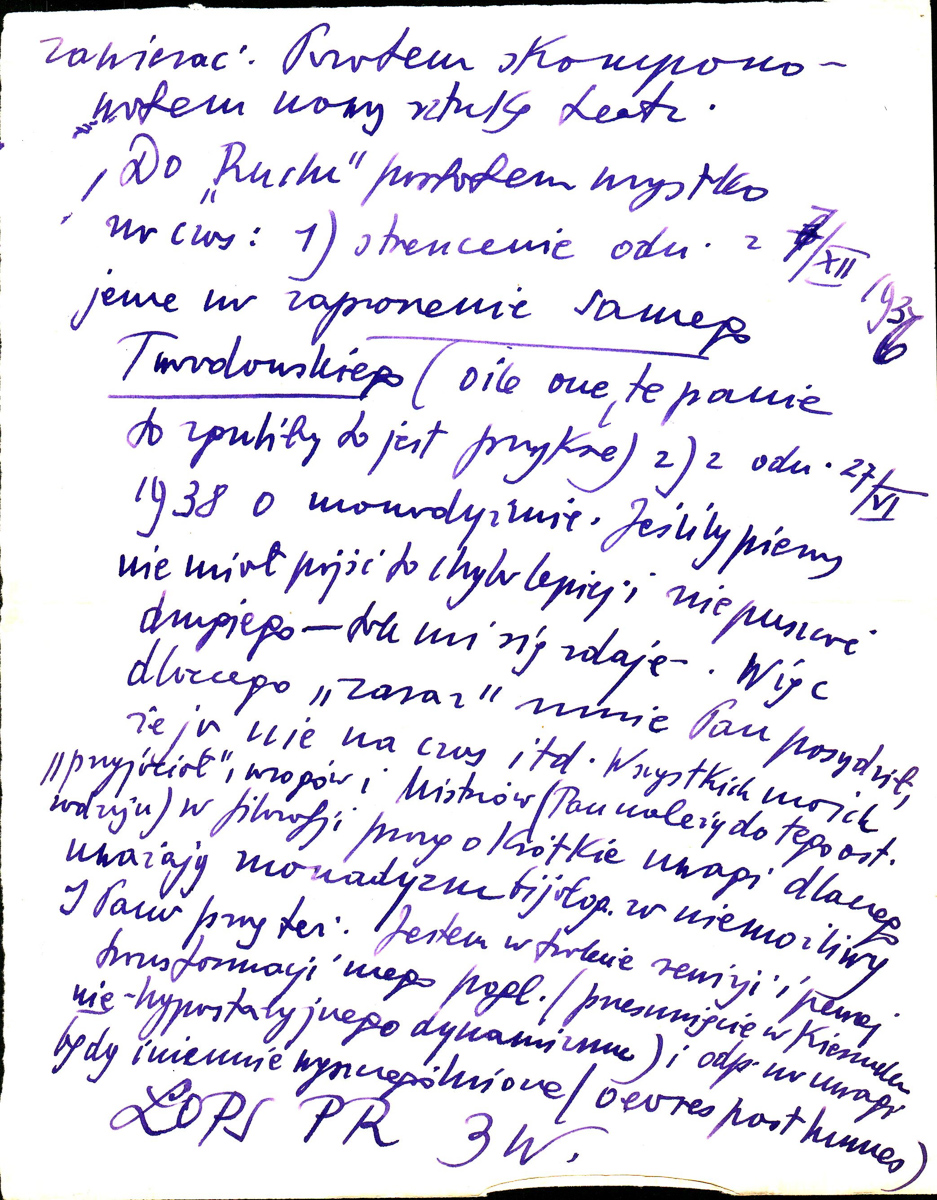 zawierać. Potem skompono-
wałem nową sztukę teatr.
Do „Ruchu" posłałem wszystko
na czas: 1) streszczenie odcz. z 7/XII 1936
jeszcze na zaproszenie samego
Twardowskiego (o ile one, te panie
to zgubiły to jest przykre) 2) z odcz. 27/VI
1938 o monadyzmie. Jeśliby pierwszy
nie miał pójść to chyba lepiej i nie puszczać
drugiego — tak mi się zdaje —. Więc
dlaczego „zaraz" mnie Pan posądził,
że ja nie na czas itd. Wszystkich moich
„przyjaciół", wrogów i Mistrzów (Pan należy do tego ost.
rodzaju) w filozofji proszę o krótkie uwagi dlaczego
uważają monadyzm bijolog. za niemożliwy
I Pana proszę też. Jestem w trakcie rewizji i pewnej
transformacji mego pogl. (przesunięcie w kierunku
nie-hypostatyjnego dynamizmu) i odp. na uwagi
będą imiennie wyszczególnione (oevres posthumes)
ŁOPS PR 3 W.